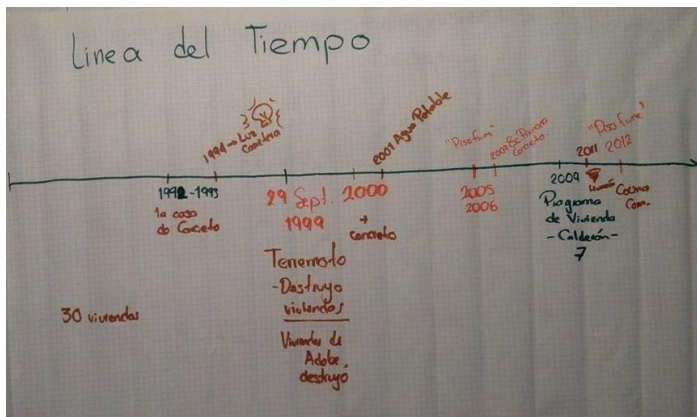 Linea del Tiempo
1994 → Luz
Carretera
2001 Agua Potable
"Piso Firme"
"Piso Firme"
2011
2012
1992-1993
1a casa
de Concreto
29 Sept.
1999
Terremoto
-Destruyo
viviendas
Viviendas de
Adobe.
destruyó
2000
→
concreto
2005
2006
2009
Programa
de Vivienda
-Calderón-
7
Huracán
Cocina
Com.
30 viviendas